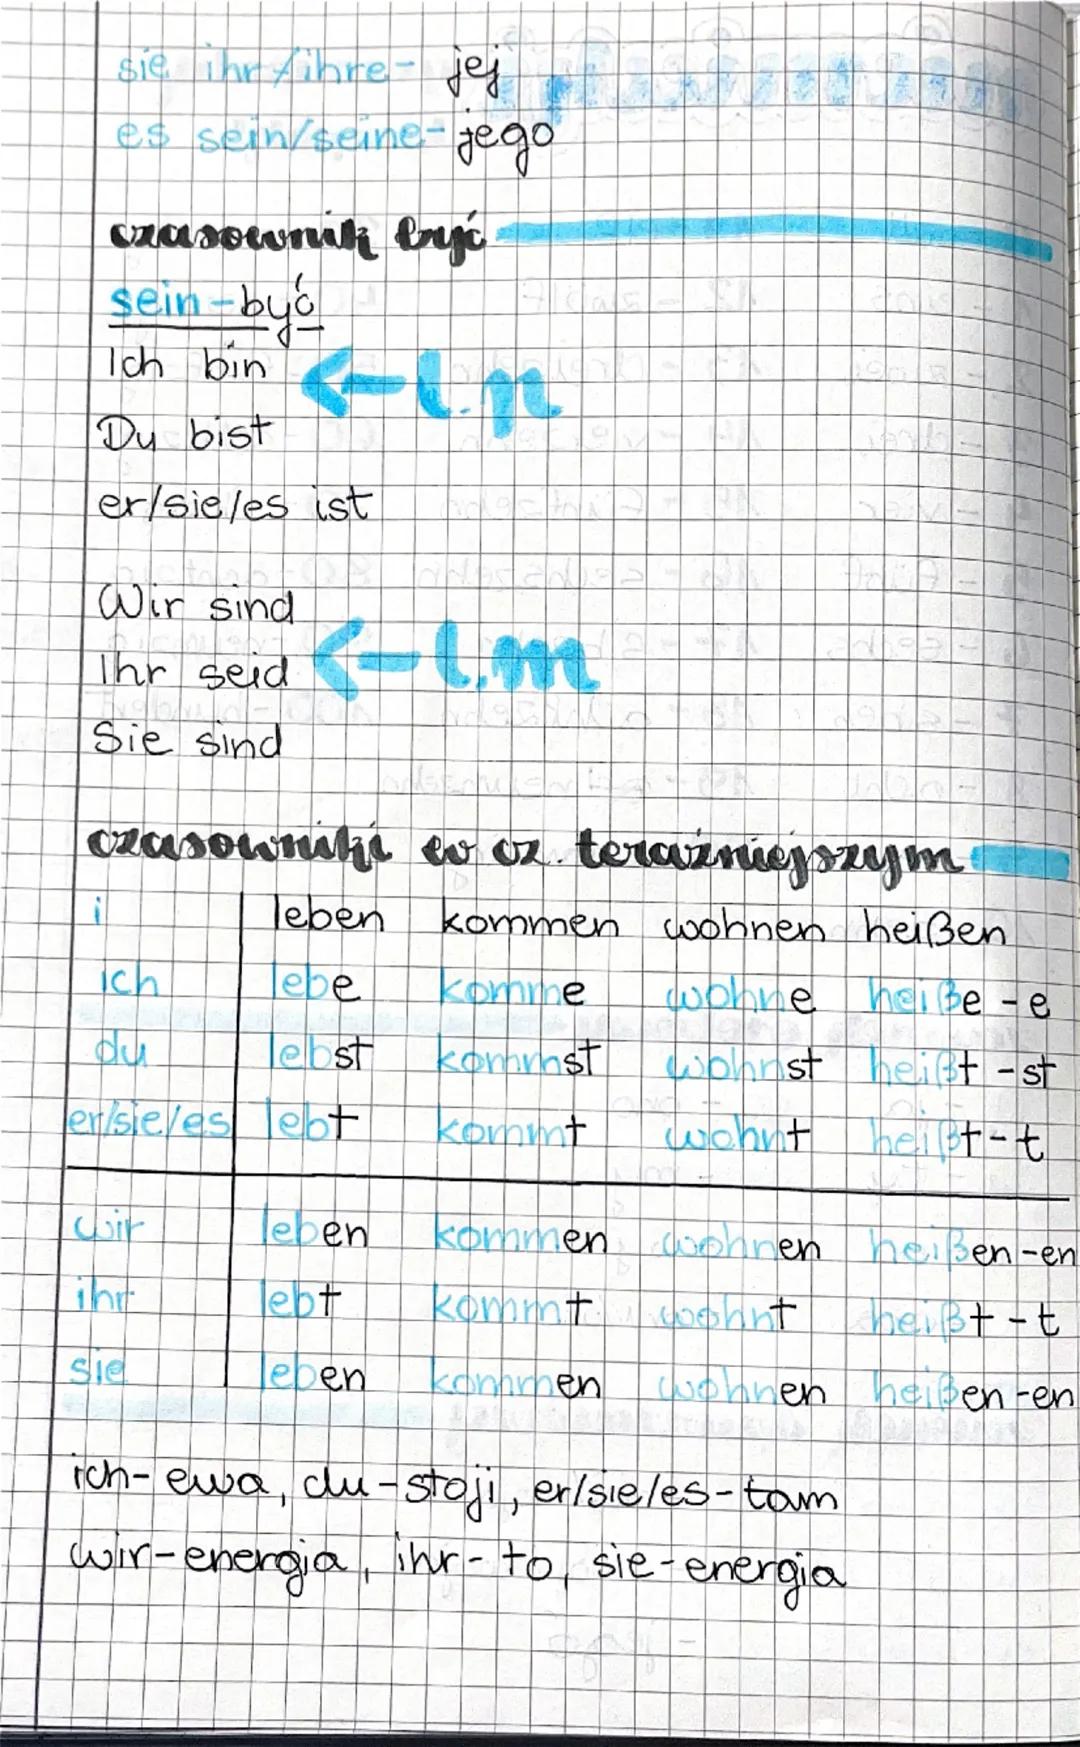 sie ihr/ihre- jej
es sein/seine- jego
czasownik być
sein - być
Ich bin
<- l.p
Du bist
er/sie/es ist
Wir sind
Ihr seid <- l.m
Sie sind
czasowniki w cz. teraźniejszym
i leben kommen wohnen heißen
ich lebe komme wohne heiße -e
du lebst kommst wohnst heißt -st
er/sie/es lebt kommt wohnt heißt -t
wir leben kommen wohnen heißen -en
ihr lebt kommt wohnt heißt -t
sie leben kommen wohnen heißen -en
ich- ewa, du -stoji, er/sie/es - tam
wir-energia, ihr- to, sie-energia